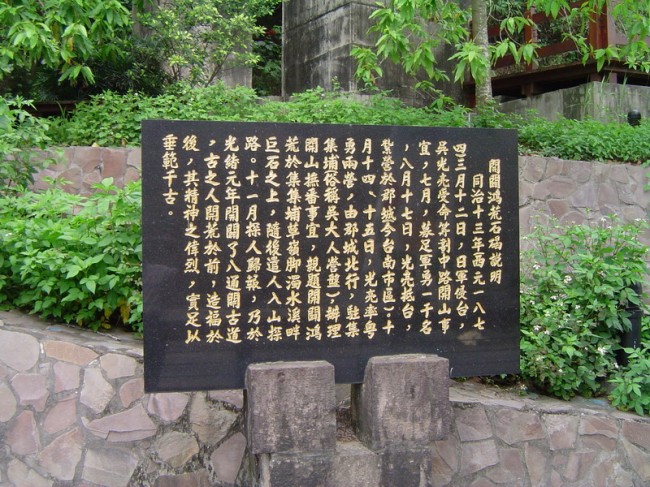 開闢鴻荒石碣說明
同治十三年西元一八七
四三月十二日,日軍侵台,
吳光亮受命籌劃中路開山事
宜,七月,募足軍勇一千名
,八月十七日,光亮抵台,
紮營於郡城今台南市區)十
月十四、十五日,光亮率粵
勇兩營,由郡城北行,駐集
集埔俗稱吳大人營盤)辦理
開山撫番事宜,親題開闢鴻
荒於集集埔草嶺腳濁水溪畔
巨石之上,隨後遣人入山探
路。十一月探人歸報,乃於
光緒元年開闢了八通關古道
,古之人開荒於前,造福於
後,其精神之偉烈,實足以
垂範千古。